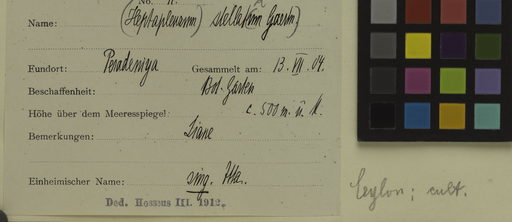 No.
Name: (Heptapleurum) stellatum Gaertn)
Fundort: Peradeniya Gesammelt am: 13. VII. 04.
Beschaffenheit: Bot. Garten
Höhe über dem Meeresspiegel: c. 500 m. ü. M.
Bemerkungen: Liane
Einheimischer Name: sing. Itta.
Ded. Hosseus III. 1912.
Ceylon; cult.